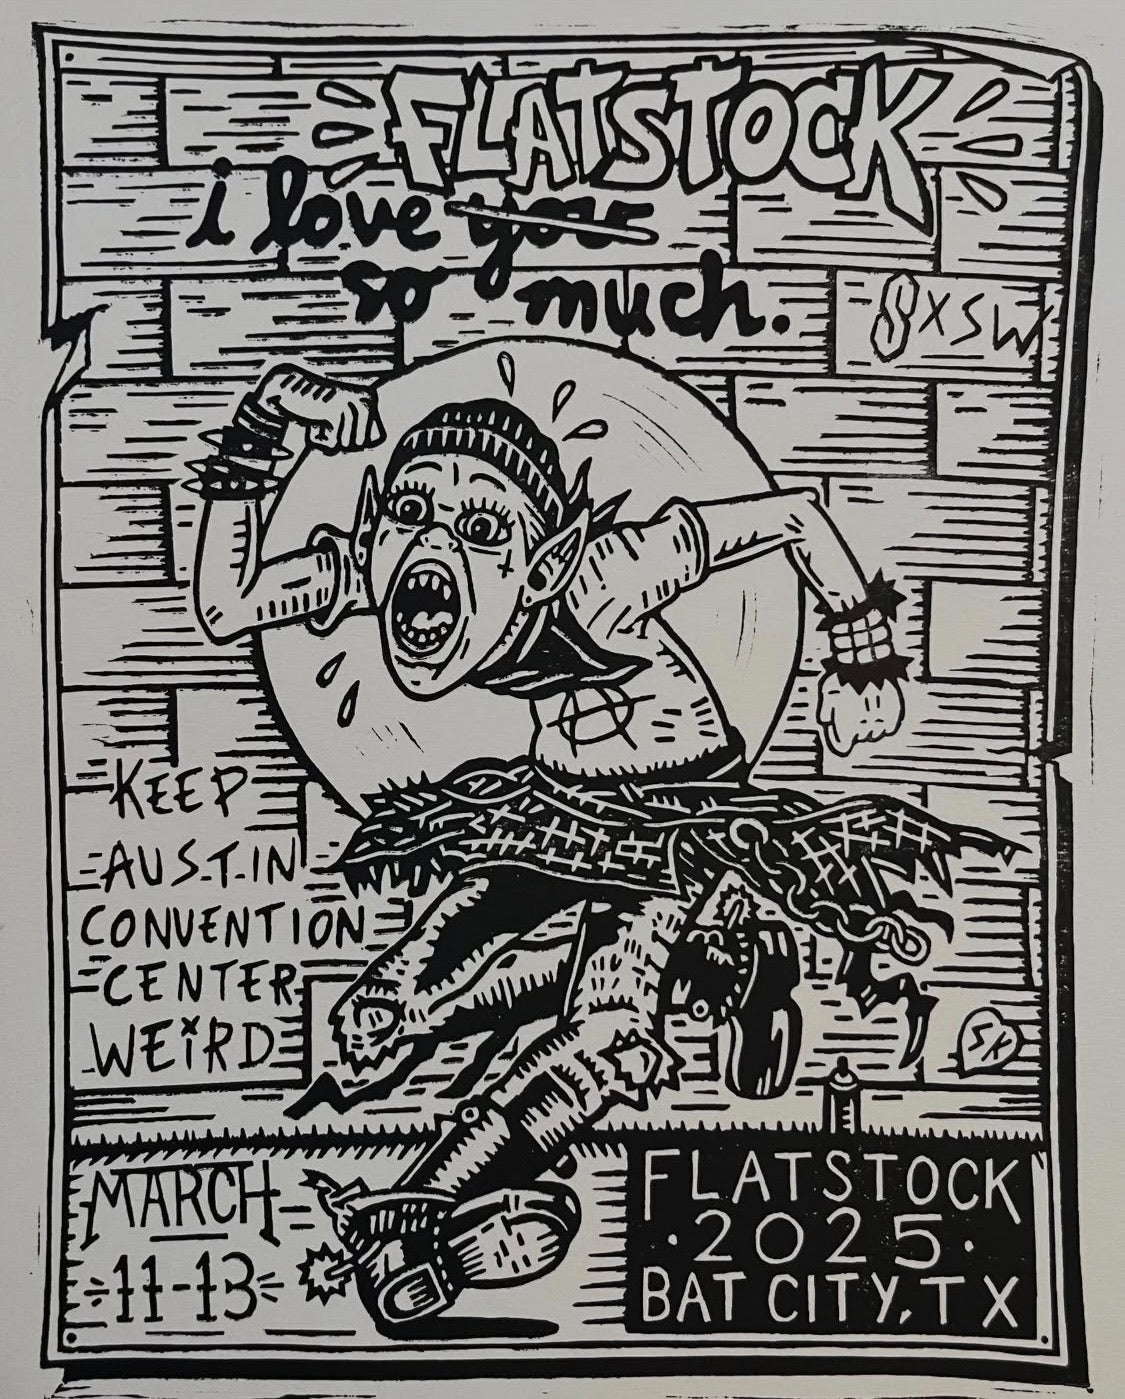 FLATSTOCK
i love you
so much.
SXSW
KEEP
AUSTIN
CONVENTION
CENTER
WEiRD
SK
MARCH
11-13
FLATSTOCK
·2025·
BAT CITY, TX